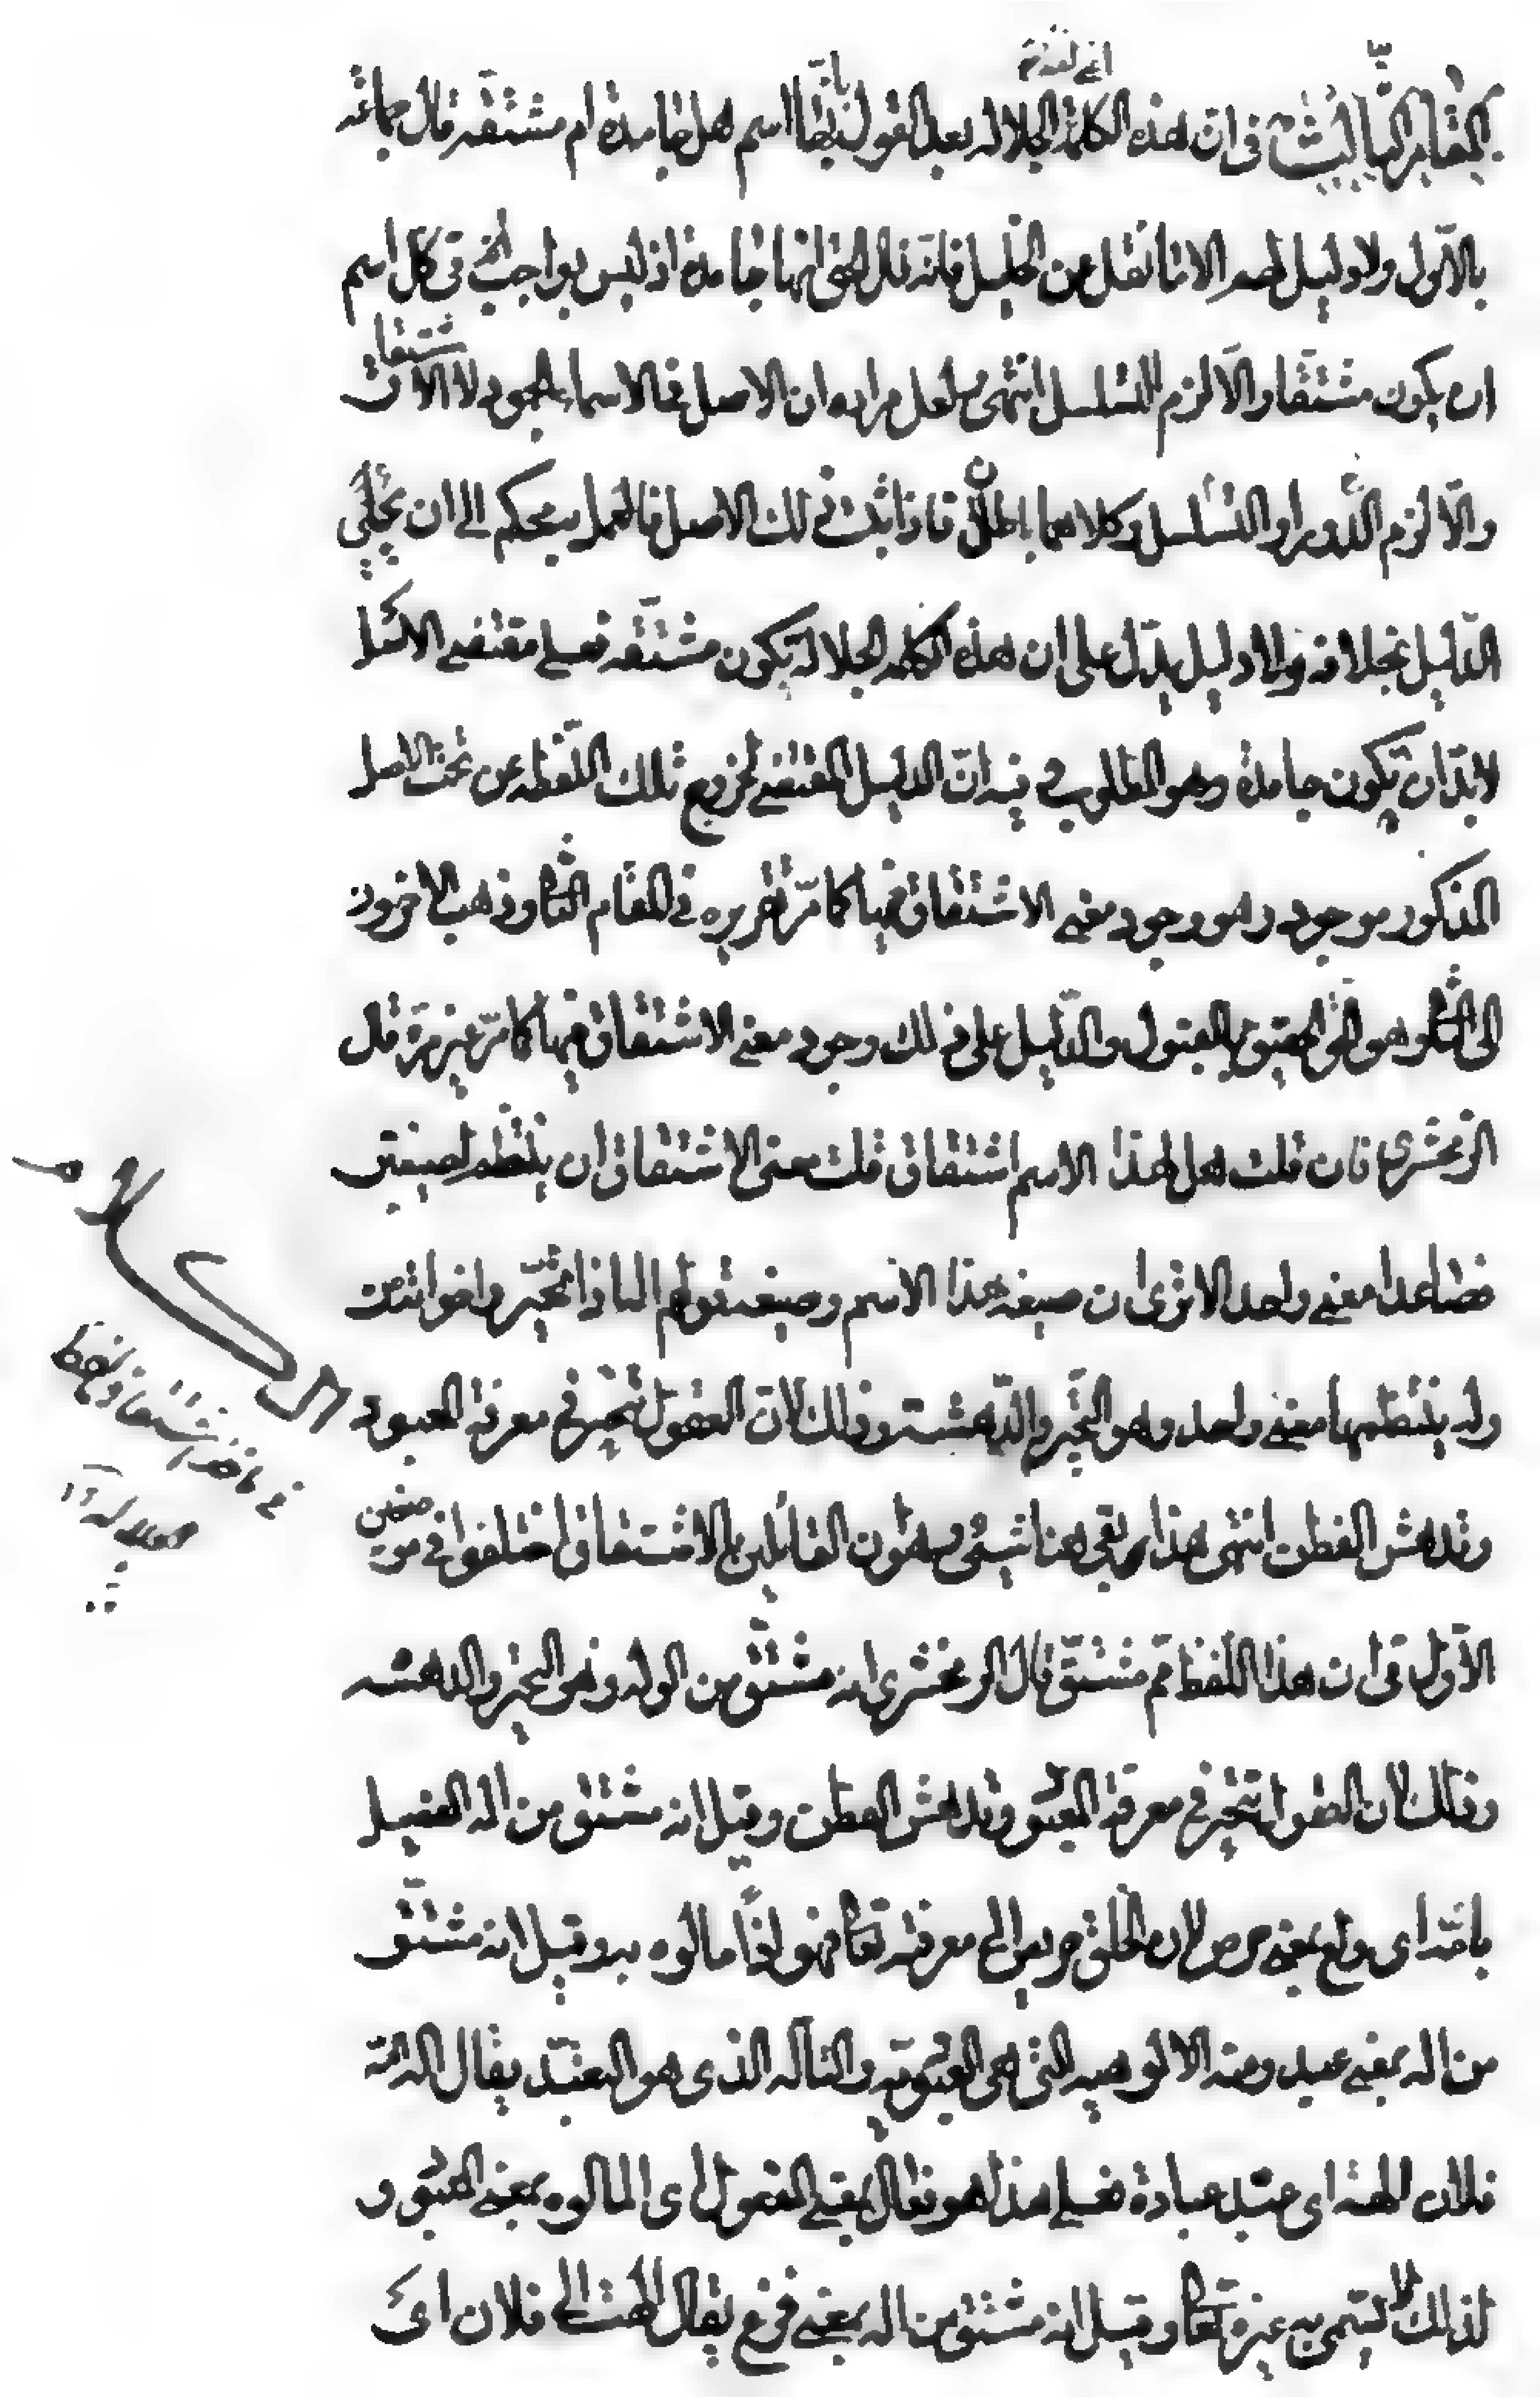 المقام الثالث في ان هذه الكلمة الجلالة بعد القول بانها اسم هل جامدة ام مشتقه قال جماعة
بالاول ولا دليل لهم الا ما نقل عن الخليل فانه قال الحق انها جامدة اذ ليس بواجب في كل اسم
ان يكون مشتقا والا لزم التسلسل انتهى ولعل مراده ان الاصل في الاسماء الجمود لا الاشتقاق
والا لزم الدور او التسلسل وكلاهما باطلان فاذا ثبت ذلك الاصل فالعمل بحكم الى ان يجيئ
الدليل بخلافه ولا دليل يدل على ان هذه الكلمه الجلالة تكون مشتقه فعلى مقتضى الاصل
لا بد ان تكون جامدة وهو المطلوب وفيه ان الدليل المقتضي لخروج تلك اللفظه عن تحت الاصل
المذكور موجود وهو وجود معنى الاشتقاق فيها كما مر تقريره في المقام الثاني وذهب الاخرون
الى الثاني وهو الحق الحقيق بالقبول والدليل على ذلك وجود معنى الاشتقاق فيها كما مر غير مرة قال
الزمخشري فان قلت هل لهذا الاسم اشتقاق قلت معنى الاشتقاق ان ينتظم الصيغتين
فصاعدا معنى واحد الا ترى ان صيغه هذا الاسم وصيغة قولهم اله اذا تحير واخواته من
وله ينتظمها معنى واحد وهو التحير والدهشة وذلك لان العقول تتحير في معرفة المعبود
وتدهش الفطن انتهى هذا بقي هنا شيئ وهو ان القائلين بالاشتقاق اختلفوا في موضعين
الاول في ان هذا اللفظ مم مشتق قال الزمخشري انه مشتق من الوله وهو التحير والدهشه
وذلك لان العقول تتحير في معرفة المعبود وتدهش الفطن وقيل انه مشتق من اله الفصيل
بامه اي ولع بمعنى حرص لان الخلق حريص الى معرفته تعالى فهو ايضا مالوه به وقيل انه مشتق
من اله بمعنى عبد ومنه الالوهيه التي هي العبودية والتأله الذي هو التعبد يقال اله
فلان الهة اي عبد عبادة فعلى هذا هو فعال بمعنى المفعول اي المالوه بمعنى المعبود و
لذلك لا يسمى به غيره تعالى وقيل انه مشتق من اله بمعنى فزع يقال الهت الى فلان اي
الكلام
في ماخذ اشتقاق لفظ
الجلالة